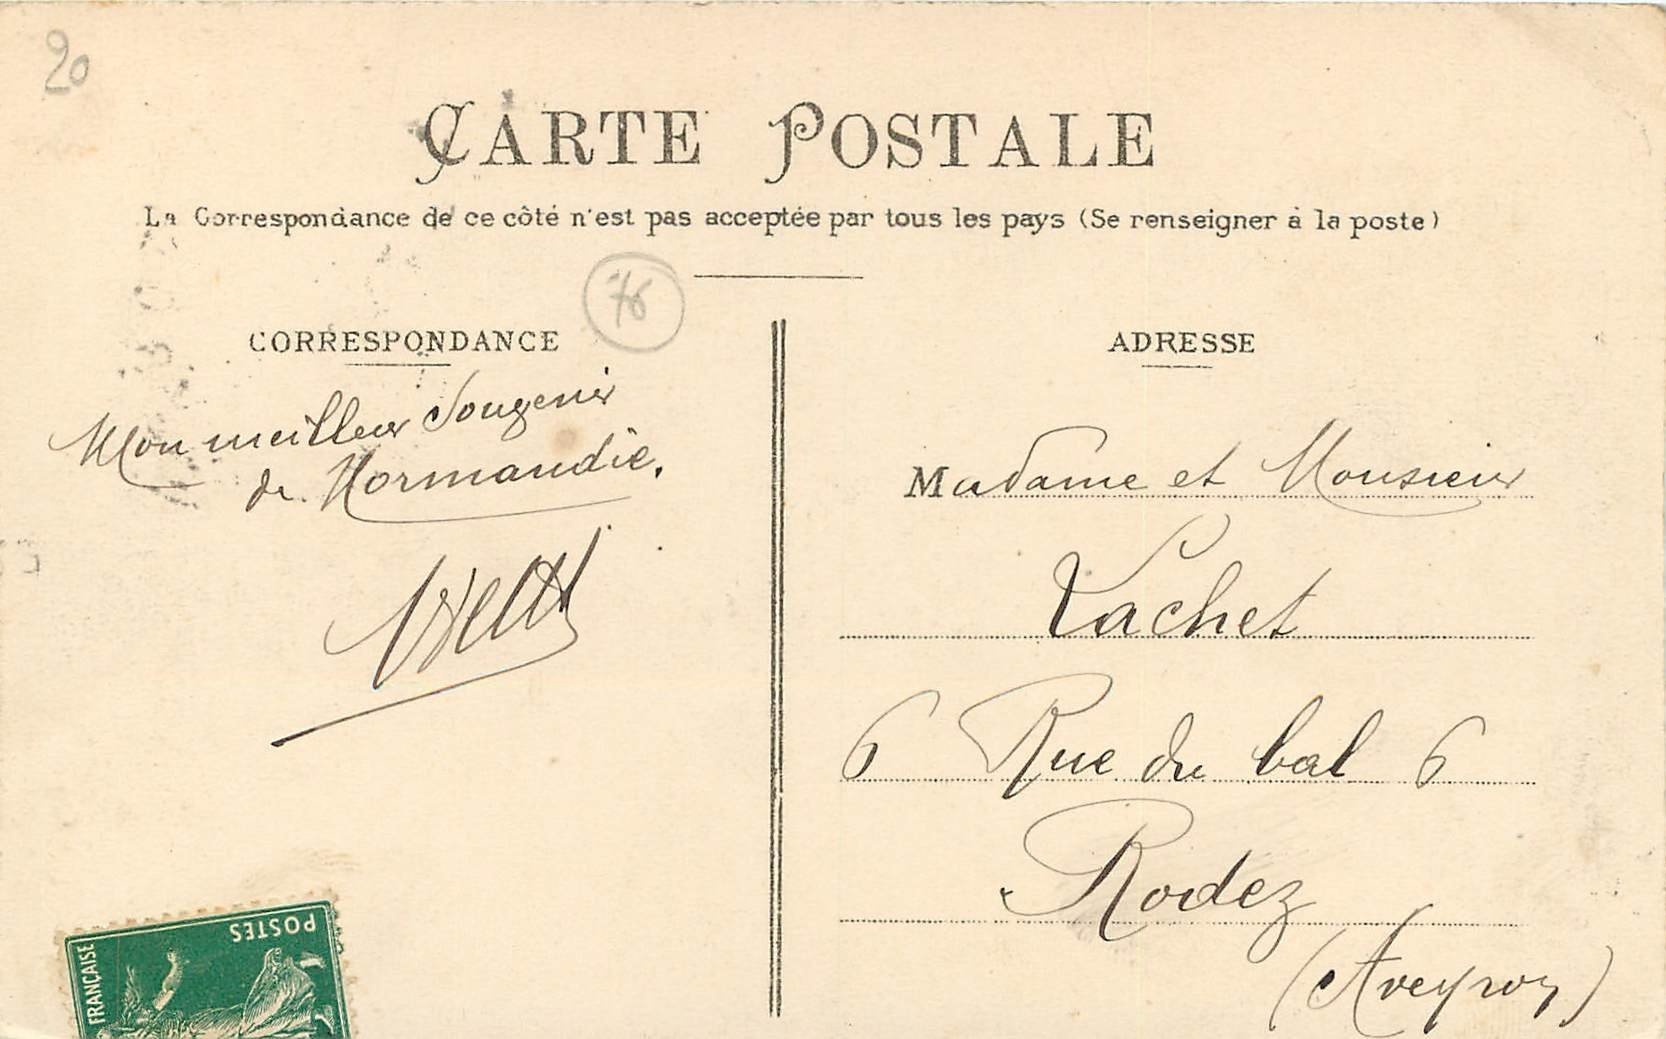 20
CARTE POSTALE
La Correspondance de ce côté n'est pas acceptée par tous les pays (Se renseigner à la poste)
76
CORRESPONDANCE
Mon meilleur Souvenir
de Normandie.
ADRESSE
Madame et Monsieur
Vachet
6 Rue du bal 6
Rodez
(Aveyron)
POSTES
FRANÇAISE